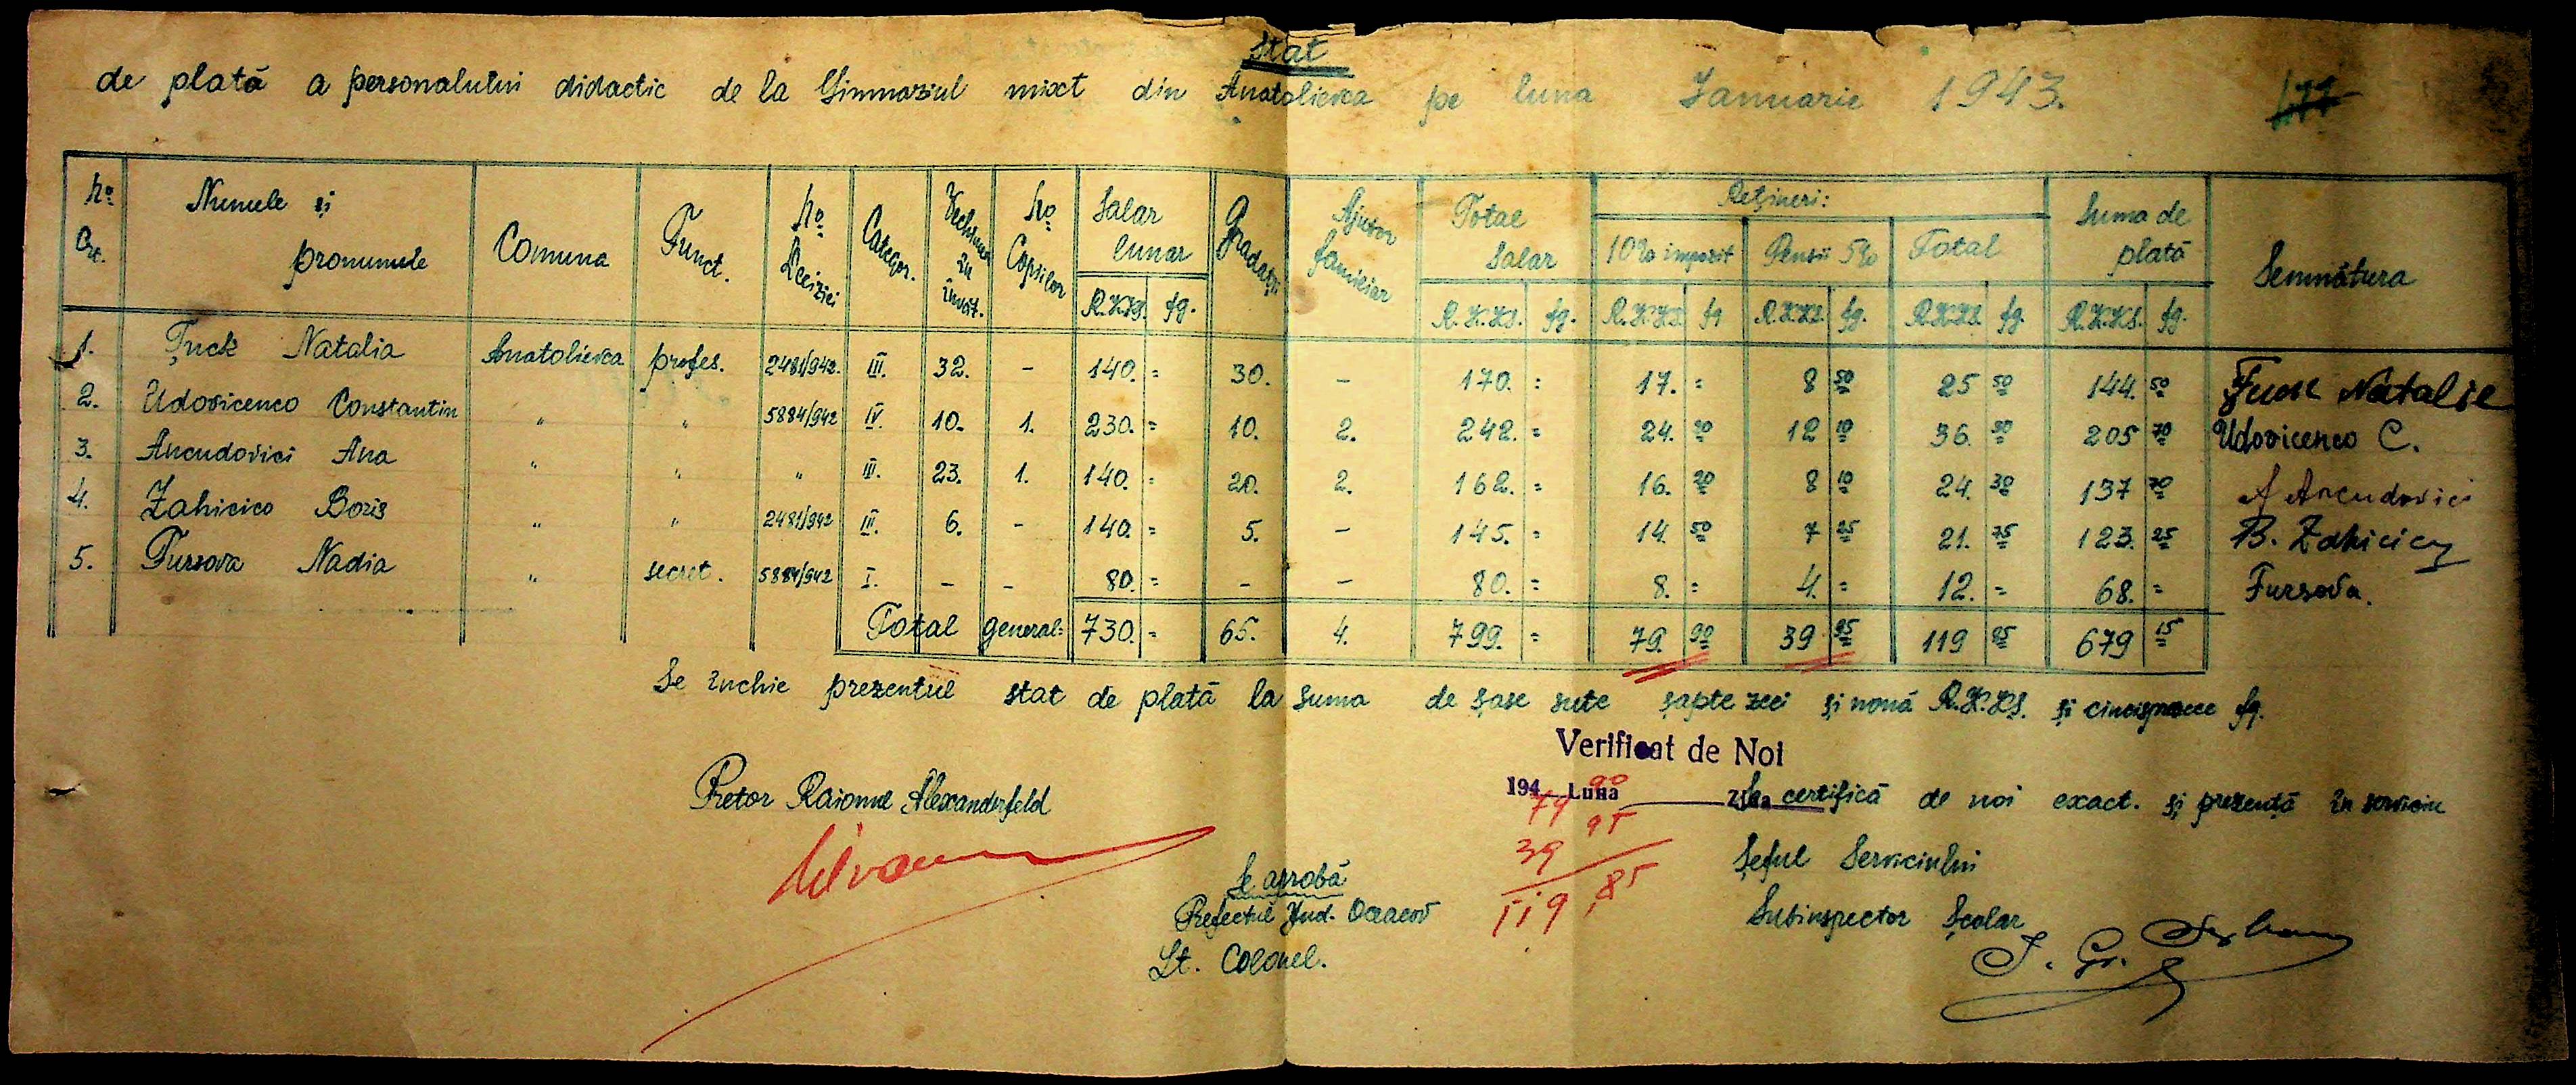 Stat
de plată a personalului didactic de la Gimnaziul mixt din Anatolievca pe luna Ianuarie 1943.
177
No Crt. Numele și pronumele Comuna Funct. No Deciziei Categor. Vechimea în învăt. No Copiilor Salar lunar Gradații Ajutor familiar Total Salar Rețineri: Suma de plată Semnătura
10% impozit Pensii 5% Total
R.K.KS. fg. R.K.KS. fg. R.K.KS. fg R.K.KS. fg. R.K.KS. fg. R.K.KS. fg.
1. Țuck Natalia Anatolievca profes. 2481/942. III. 32. - 140. = 30. - 170. = 17. = 8 50 25 50 144. 50
2. Udovicenco Constantin " " 5884/942 IV. 10. 1. 230. = 10. 2. 242. = 24. 20 12 10 36. 30 205 70 Udovicenco C.
3. Ancudovici Ana " " " III. 23. 1. 140. = 20. 2. 162. = 16. 20 8 10 24. 30 137 70 A Ancudovici
4. Zahicico Boris " " 2481/942 III. 6. - 140. = 5. - 145. = 14. 50 7 25 21. 75 123. 25
5. Fursova Nadia " secret. 5884/942 I. - - 80. = - - 80. = 8. = 4. = 12. = 68. = Fursova.
Total general: 730. = 65. 4. 799. = 79. 90 39 95 119 85 679 15
Se închie prezentul stat de plată la suma de șase sute șapte zeci și nouă R.K.KS. și cincisprece fg.
Verificat de Noi
194 Luna Ziua
79 90
39 95
119,85
Pretor Raionul Alexanderfeld
Se certifică de noi exact. și prezență în serviciu
Șeful Serviciului
Subinspector Școlar
Se aprobă
Prefectul Jud. Oceacov
Lt. Colonel.